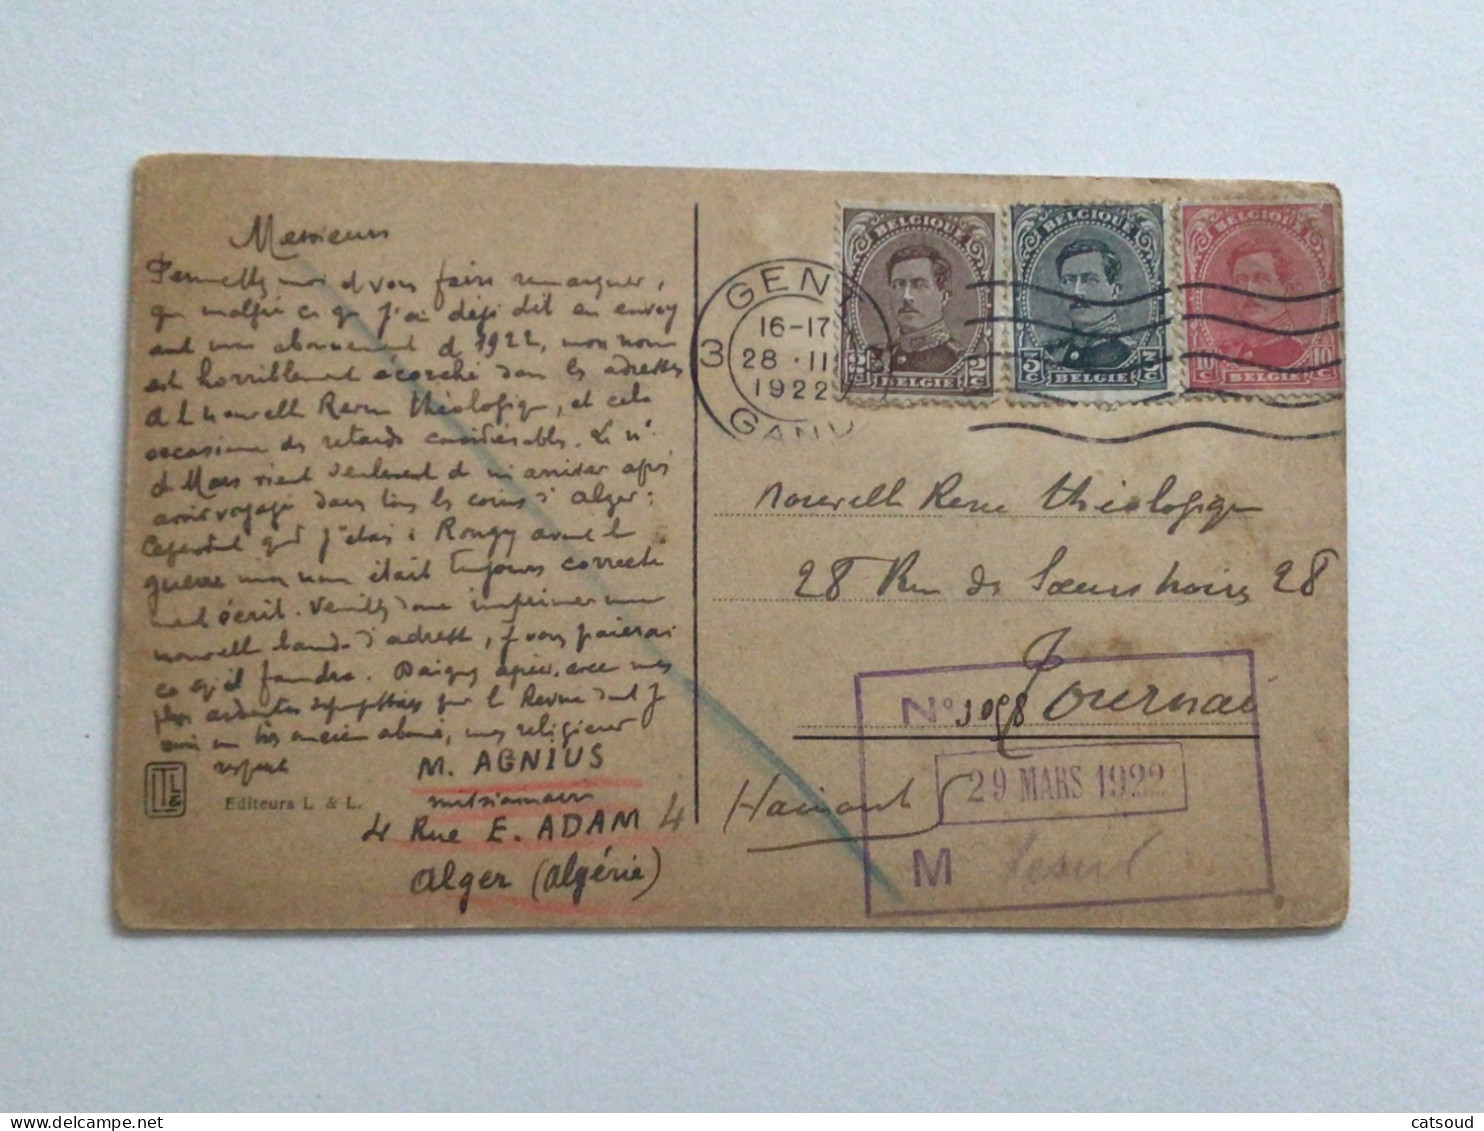 Messieurs
Permettez moi d vous faire remarquer,
que malgré ce que j'ai déjà dit en envoy
ant mon abonnement d 1922, mon nom
est horriblement écorché dans les adresses
d l nouvelle Revue théologique, et cela
occasionne des retards considérables. Le n°
d Mars vient seulement d m'arriver après
avoir voyagé dans tous les coins d'Alger;
Cependant quand j'étais à Rongy avant la
guerre mon nom était toujours correcte
ment écrit. Veuillez donc imprimer une
nouvelle bande d'adresse, je vous paierai
ce qu'il faudra. Daignez agréer, avec mes
plus ardentes sympathies pour la Revue dont je
suis un très ancien abonné, mes religieux
respects
M. AGNIUS
missionnaire
4 Rue E. ADAM 4
Alger (Algérie)
Editeurs L. & L.
GENT
3 16-17
28 · II
1922
GAND
BELGIQUE
2c 2c
BELGIE
BELGIQUE
5c 5c
BELGIE
BELGIQUE
10c 10c
BELGIE
Nouvelle Revue théologique
28 Rue des Sœurs Noires 28
Tournai
Hainaut
N° 3098
29 MARS 1922
M
catsoud